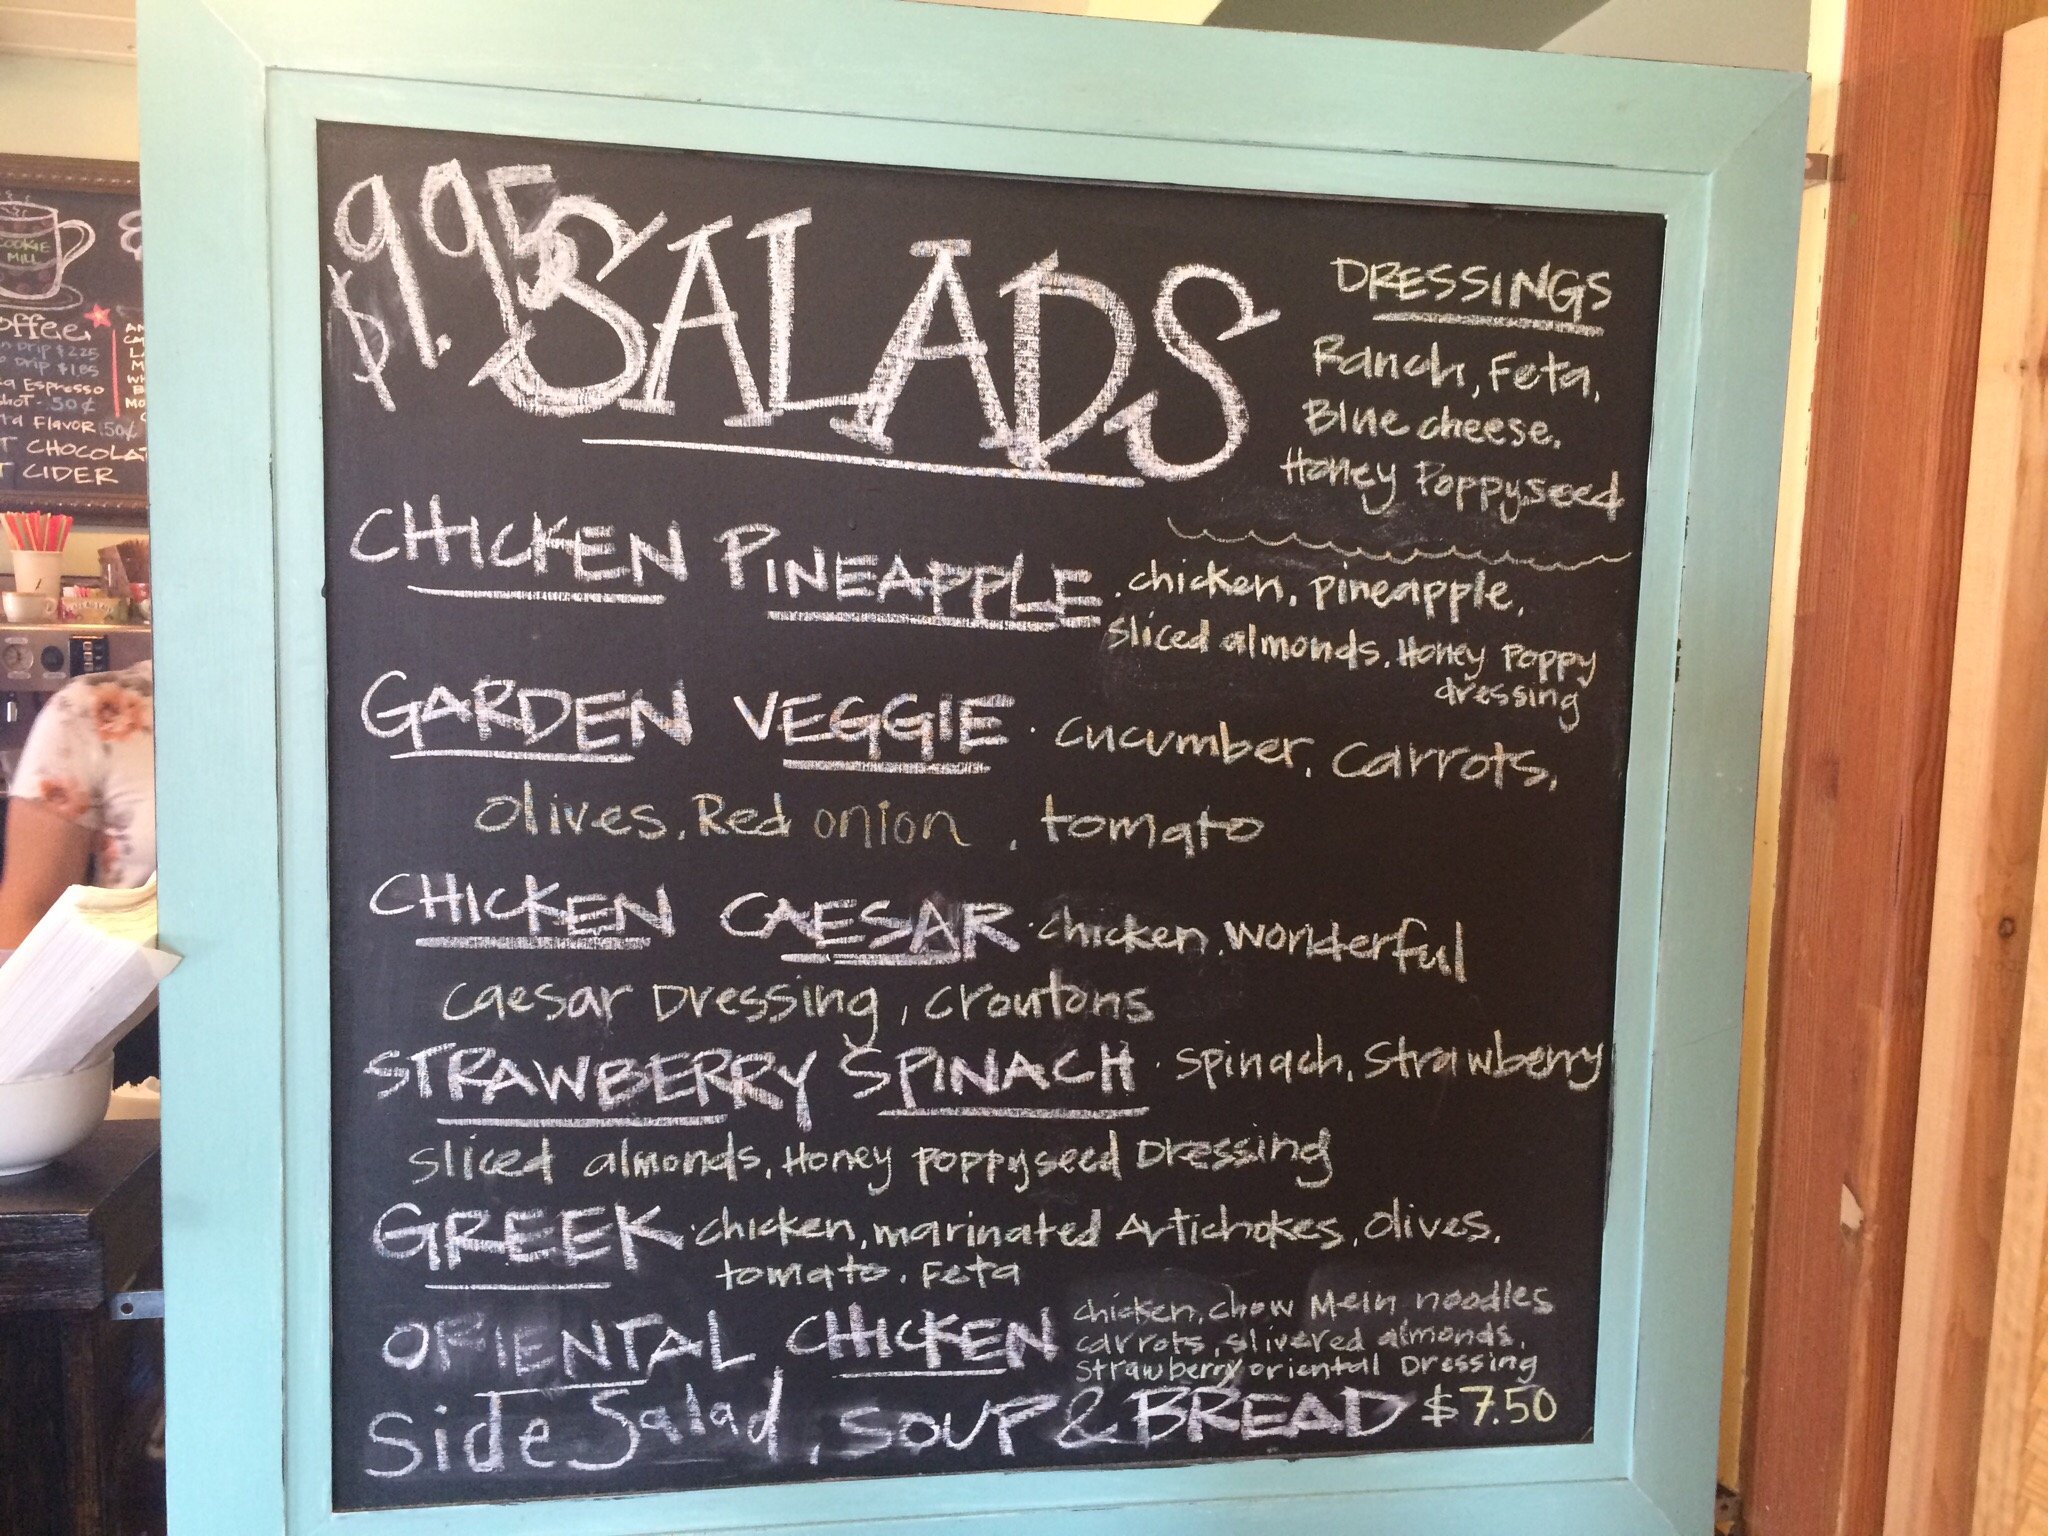 $9.95 SALADS
DRESSINGS
Ranch, Feta,
Blue cheese,
Honey Poppyseed
CHICKEN PINEAPPLE . chicken, pineapple,
sliced almonds, Honey Poppy
dressing
GARDEN VEGGIE . cucumber, carrots,
olives, Red onion, tomato
CHICKEN CAESAR . chicken, wonderful
caesar Dressing, croutons
STRAWBERRY SPINACH . spinach, strawberry
sliced almonds, Honey poppyseed Dressing
GREEK . chicken, marinated Artichokes, olives,
tomato, Feta
ORIENTAL CHICKEN chicken, chow Mein noodles
carrots, slivered almonds,
strawberry oriental Dressing
Side Salad, SOUP & BREAD $7.50
COOKIE
MILL
Drip $2.25
Drip $1.85
Espresso
50¢
Flavor 50¢
CIDER